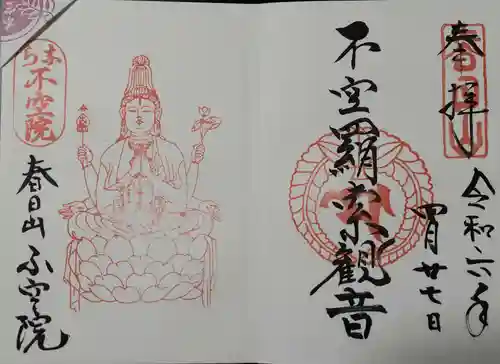 奉拝
令和六年
四月廿七日
不空羂索観音
なら
不空院
春日山 不空院